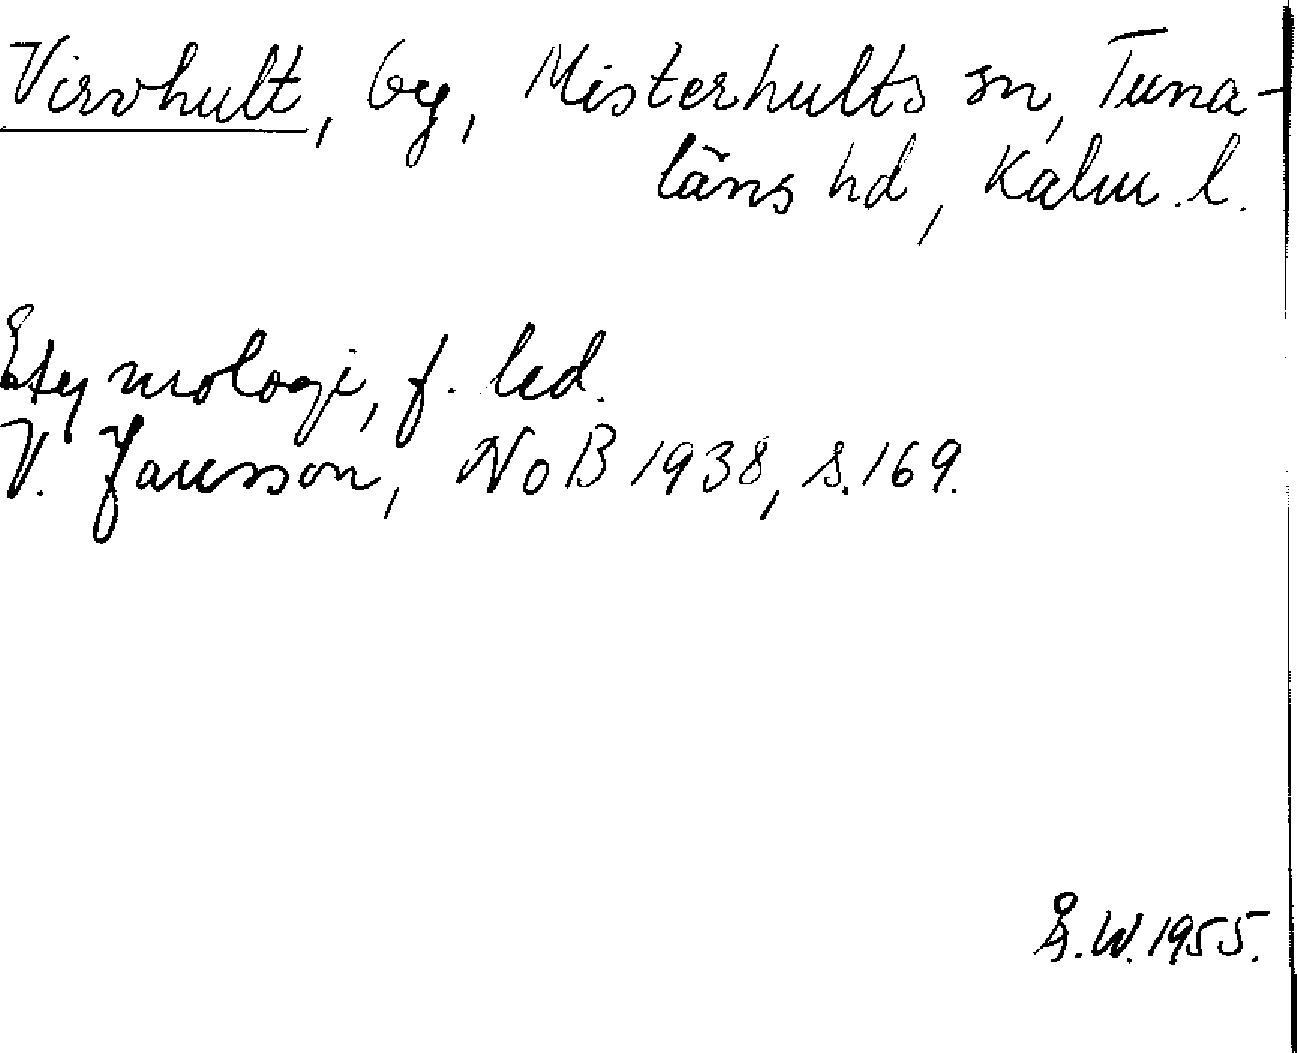 Virvhult, by, Misterhults sn, Tuna-
läns hd, Kalm. l.
Etymologi, f. led.
V. Jansson, NoB 1938, s. 169.
Å. W. 1955.